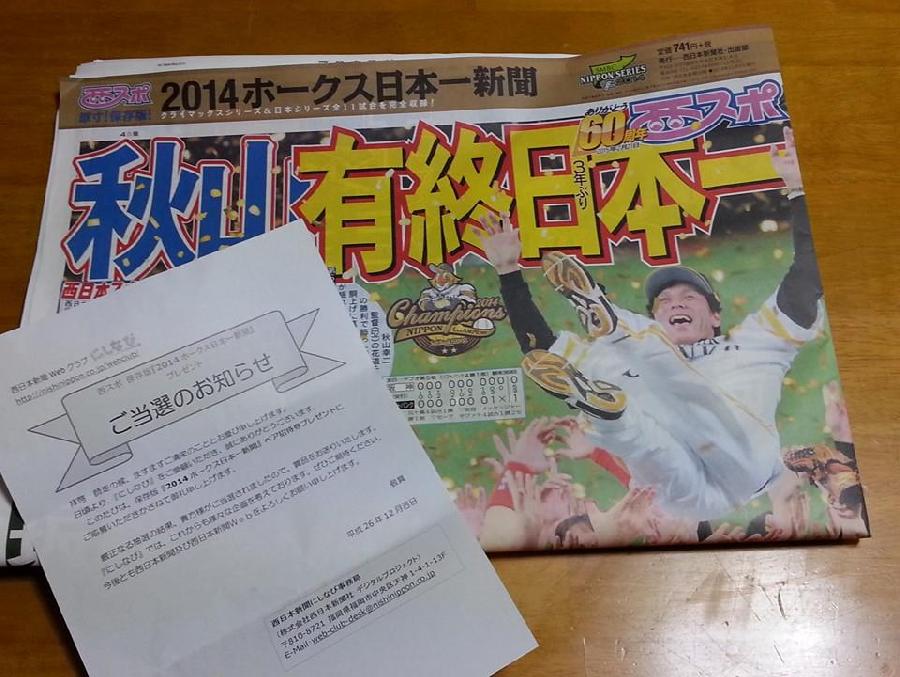 西スポ
原寸!保存版!
2014ホークス日本一新聞
クライマックスシリーズ&日本シリーズ全11試合を完全収録!
SMBC
NIPPON SERIES
定価 741円+税
ありがとう
60周年
西スポ
秋山有終日本一
3年ぶり
秋山幸二
2014
Champions
NIPPON
000 000 000 0
000 000 01× 1
西日本新聞 Web クラブ にしなび
http://nishinippon.co.jp/webclub/
西スポ 保存版『2014ホークス日本一新聞』
プレゼント
ご当選のお知らせ
拝啓 師走の候、ますますご清栄のこととお慶び申し上げます。
日頃より『にしなび』をご愛顧いただき、誠にありがとうございます。
このたびは、保存版『2014ホークス日本一新聞』プレゼントに
ご応募いただきかさねて御礼申し上げます。
厳正なる抽選の結果、貴方様がご当選されましたので、賞品をお送りいたします。
『にしなび』では、これからも様々な企画を考えております。ぜひご期待ください。
今後とも西日本新聞及び西日本新聞Webをよろしくお願い申し上げます。
敬具
平成26年12月吉日
西日本新聞にしなび事務局
(株式会社西日本新聞社 デジタルプロジェクト)
〒810-8721 福岡県福岡市中央区天神 1-4-1-13F
E-Mail:web-club-desk@nishinippon.co.jp